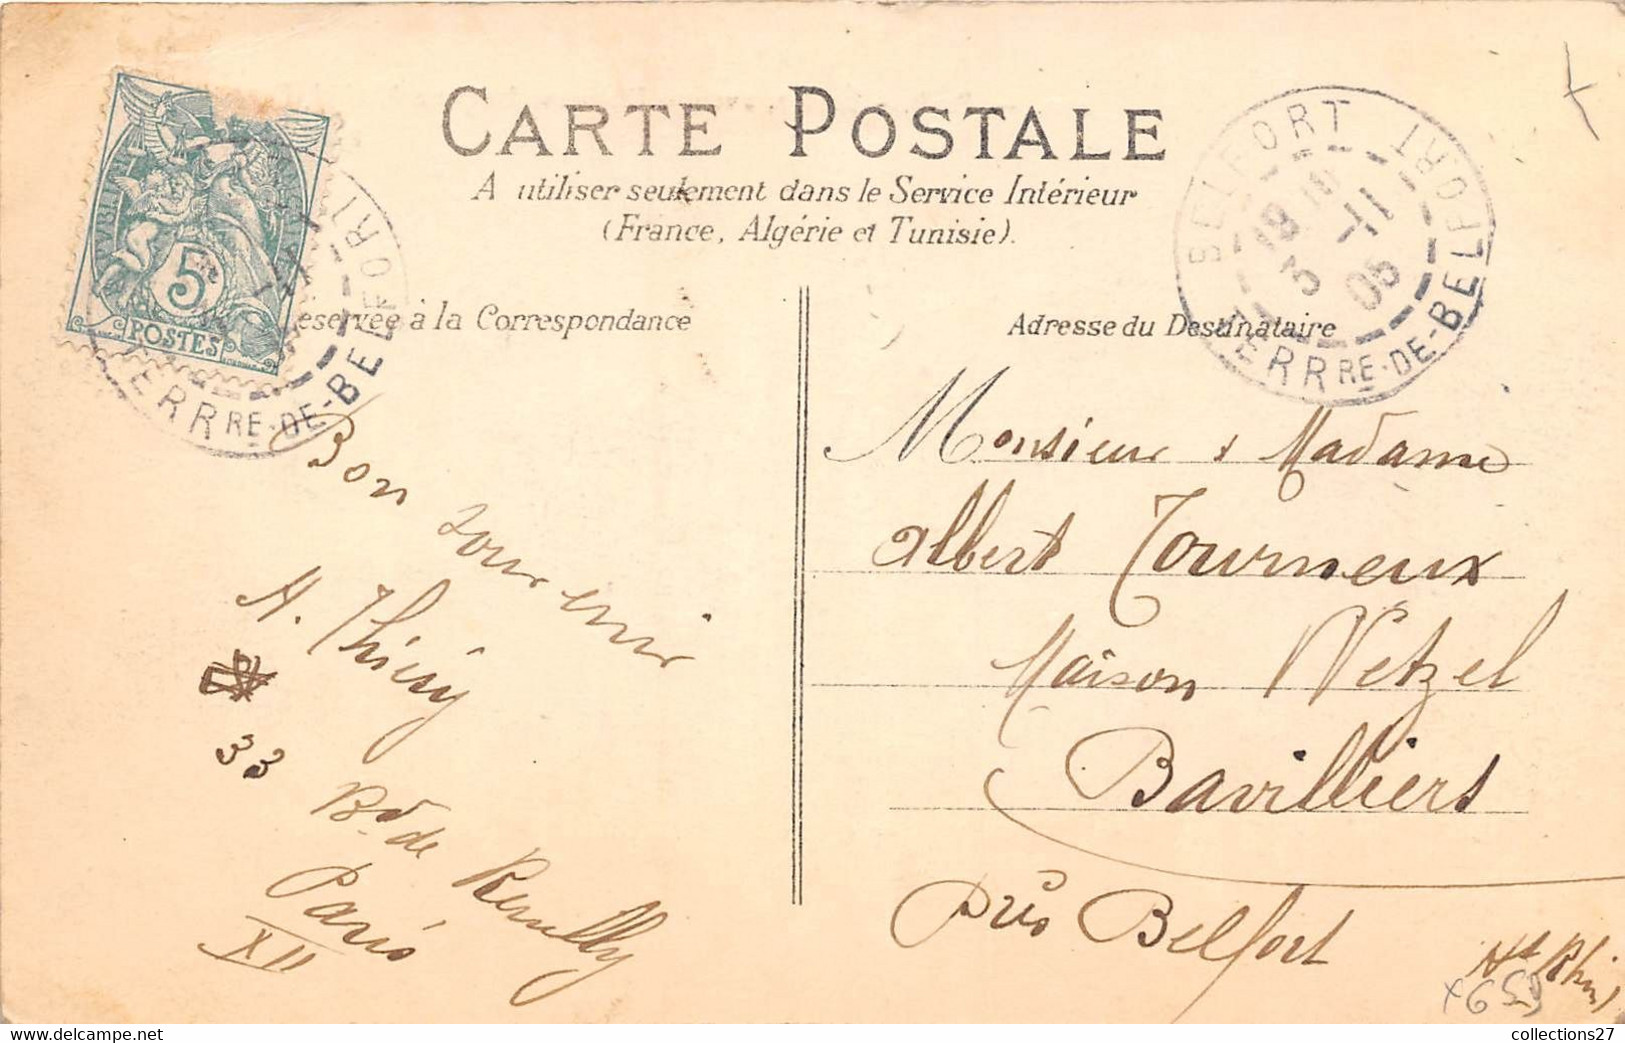 CARTE POSTALE
A utiliser seulement dans le Service Intérieur
(France, Algérie et Tunisie).
eservée à la Correspondance
Adresse du Destinataire
5
POSTES
BELFORT
TERRRE-DE-BELFORT
3 -11
05
TERRRE-DE-BELFORT
Bon souvenir
A. Thiery
33 Bd de Reuilly
Paris
XII
Monsieur & Madame
Albert Tourneux
Maison Wetzel
Bavilliers
Près Belfort
Ht Rhin)
collections27